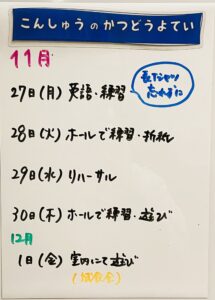 こんしゅうのかつどうよてい
11月
27日(月) 英語・練習
長Tシャツ
忘れずに
28日(火) ホールで練習・折紙
29日(水) リハーサル
30日(木) ホールで練習・遊び
12月
1日(金) 室内にて遊び